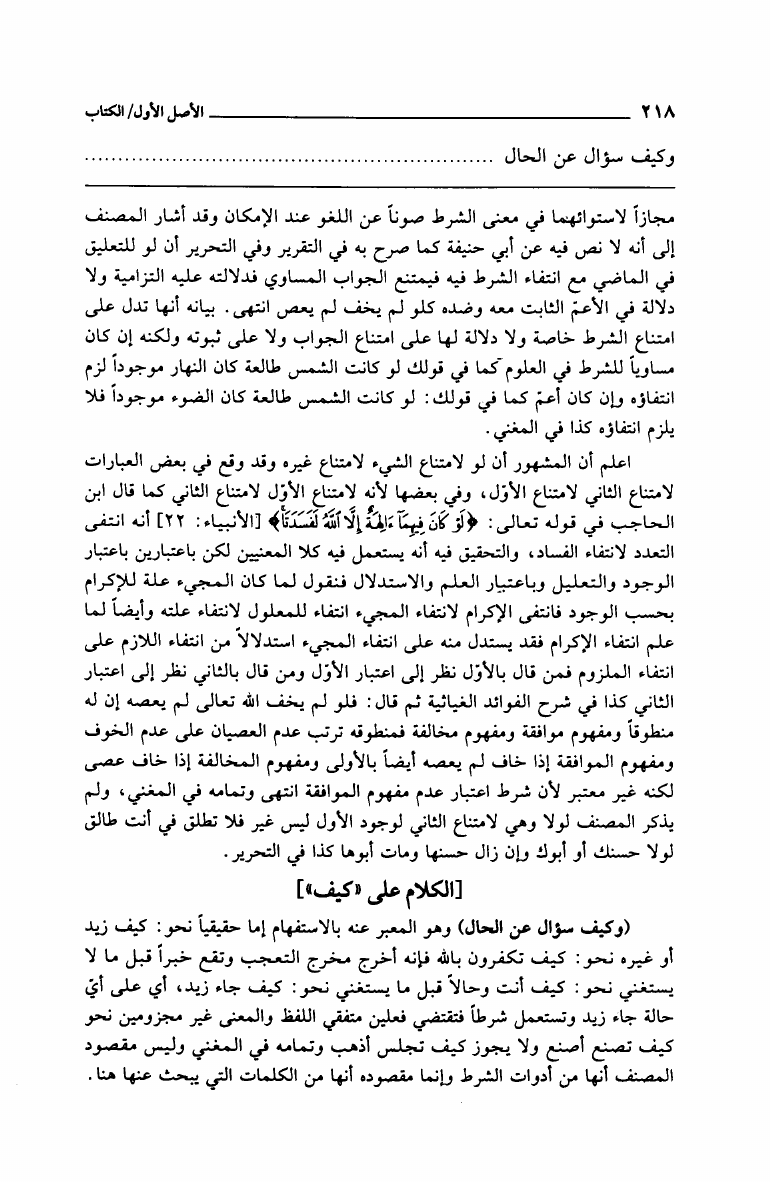 ٢١٨ ــــــــــــــــــــــــــــــــ الأصل الأول/ الكتاب
وكيف سؤال عن الحال ..............................................................
مجازاً لاستوائهما في معنى الشرط صوناً عن اللغو عند الإمكان وقد أشار المصنف
إلى أنه لا نص فيه عن أبي حنيفة كما صرح به في التقرير وفي التحرير أن لو للتعليق
في الماضي مع انتفاء الشرط فيه فيمتنع الجواب المساوي فدلالته عليه التزامية ولا
دلالة في الأعمّ الثابت معه وضده كلو لم يخف لم يعص انتهى. بيانه أنها تدل على
امتناع الشرط خاصة ولا دلالة لها على امتناع الجواب ولا على ثبوته ولكنه إن كان
مساوياً للشرط في العلوم كما في قولك لو كانت الشمس طالعة كان النهار موجوداً لزم
انتفاؤه وإن كان أعمّ كما في قولك: لو كانت الشمس طالعة كان الضوء موجوداً فلا
يلزم انتفاؤه كذا في المغني.
اعلم أن المشهور أن لو لامتناع الشيء لامتناع غيره وقد وقع في بعض العبارات
لامتناع الثاني لامتناع الأوّل، وفي بعضها لأنه لامتناع الأوّل لامتناع الثاني كما قال ابن
الحاجب في قوله تعالى: ﴿لَوْ كَانَ فِيهِمَآ ءَالِهَةٌ إِلَّا ٱللَّهُ لَفَسَدَتَا﴾ [الأنبياء: ٢٢] أنه انتفى
التعدد لانتفاء الفساد، والتحقيق فيه أنه يستعمل فيه كلا المعنيين لكن باعتبارين باعتبار
الوجود والتعليل وباعتبار العلم والاستدلال فنقول لما كان المجيء علة للإكرام
بحسب الوجود فانتفى الإكرام لانتفاء المجيء انتفاء للمعلول لانتفاء علته وأيضاً لما
علم انتفاء الإكرام فقد يستدل منه على انتفاء المجيء استدلالاً من انتفاء اللازم على
انتفاء الملزوم فمن قال بالأوّل نظر إلى اعتبار الأوّل ومن قال بالثاني نظر إلى اعتبار
الثاني كذا في شرح الفوائد الغياثية ثم قال: فلو لم يخف الله تعالى لم يعصه إن له
منطوقاً ومفهوم موافقة ومفهوم مخالفة فمنطوقه ترتب عدم العصيان على عدم الخوف
ومفهوم الموافقة إذا خاف لم يعصه أيضاً بالأولى ومفهوم المخالفة إذا خاف عصى
لكنه غير معتبر لأن شرط اعتبار عدم مفهوم الموافقة انتهى وتمامه في المغني، ولم
يذكر المصنف لولا وهي لامتناع الثاني لوجود الأول ليس غير فلا تطلق في أنت طالق
لولا حسنك أو أبوك وإن زال حسنها ومات أبوها كذا في التحرير.
[الكلام على «كيف»]
(وكيف سؤال عن الحال) وهو المعبر عنه بالاستفهام إما حقيقياً نحو: كيف زيد
أو غيره نحو: كيف تكفرون بالله فإنه أخرج مخرج التعجب وتقع خبراً قبل ما لا
يستغني نحو: كيف أنت وحالاً قبل ما يستغني نحو: كيف جاء زيد، أي على أيّ
حالة جاء زيد وتستعمل شرطاً فتقتضي فعلين متفقي اللفظ والمعنى غير مجزومين نحو
كيف تصنع أصنع ولا يجوز كيف تجلس أذهب وتمامه في المغني وليس مقصود
المصنف أنها من أدوات الشرط وإنما مقصوده أنها من الكلمات التي يبحث عنها هنا.